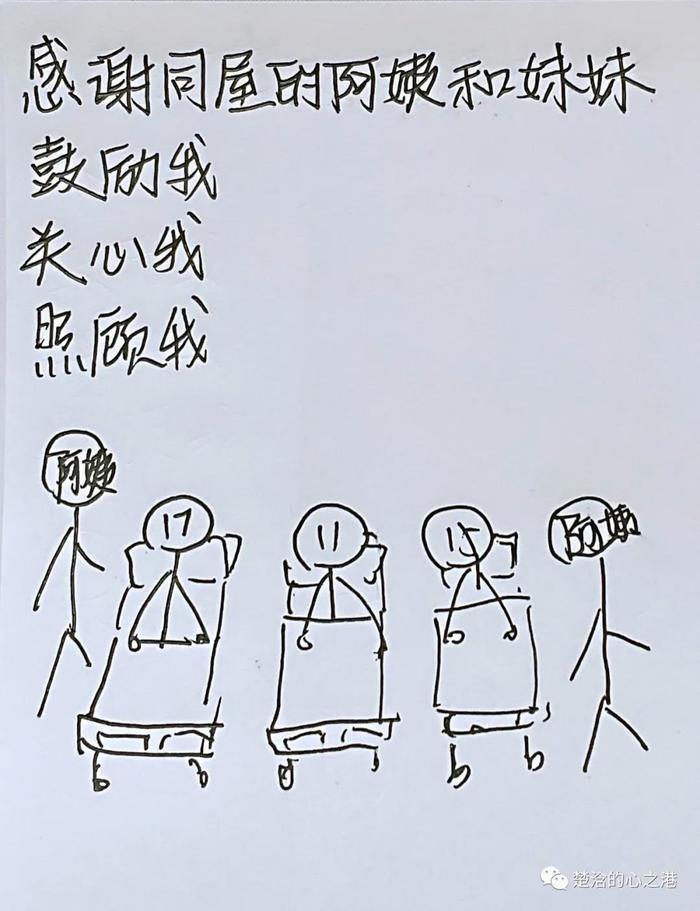 感谢同屋的阿姨和妹妹
鼓励我
关心我
照顾我
阿姨
17
11
15
阿姨
楚浛的心之港